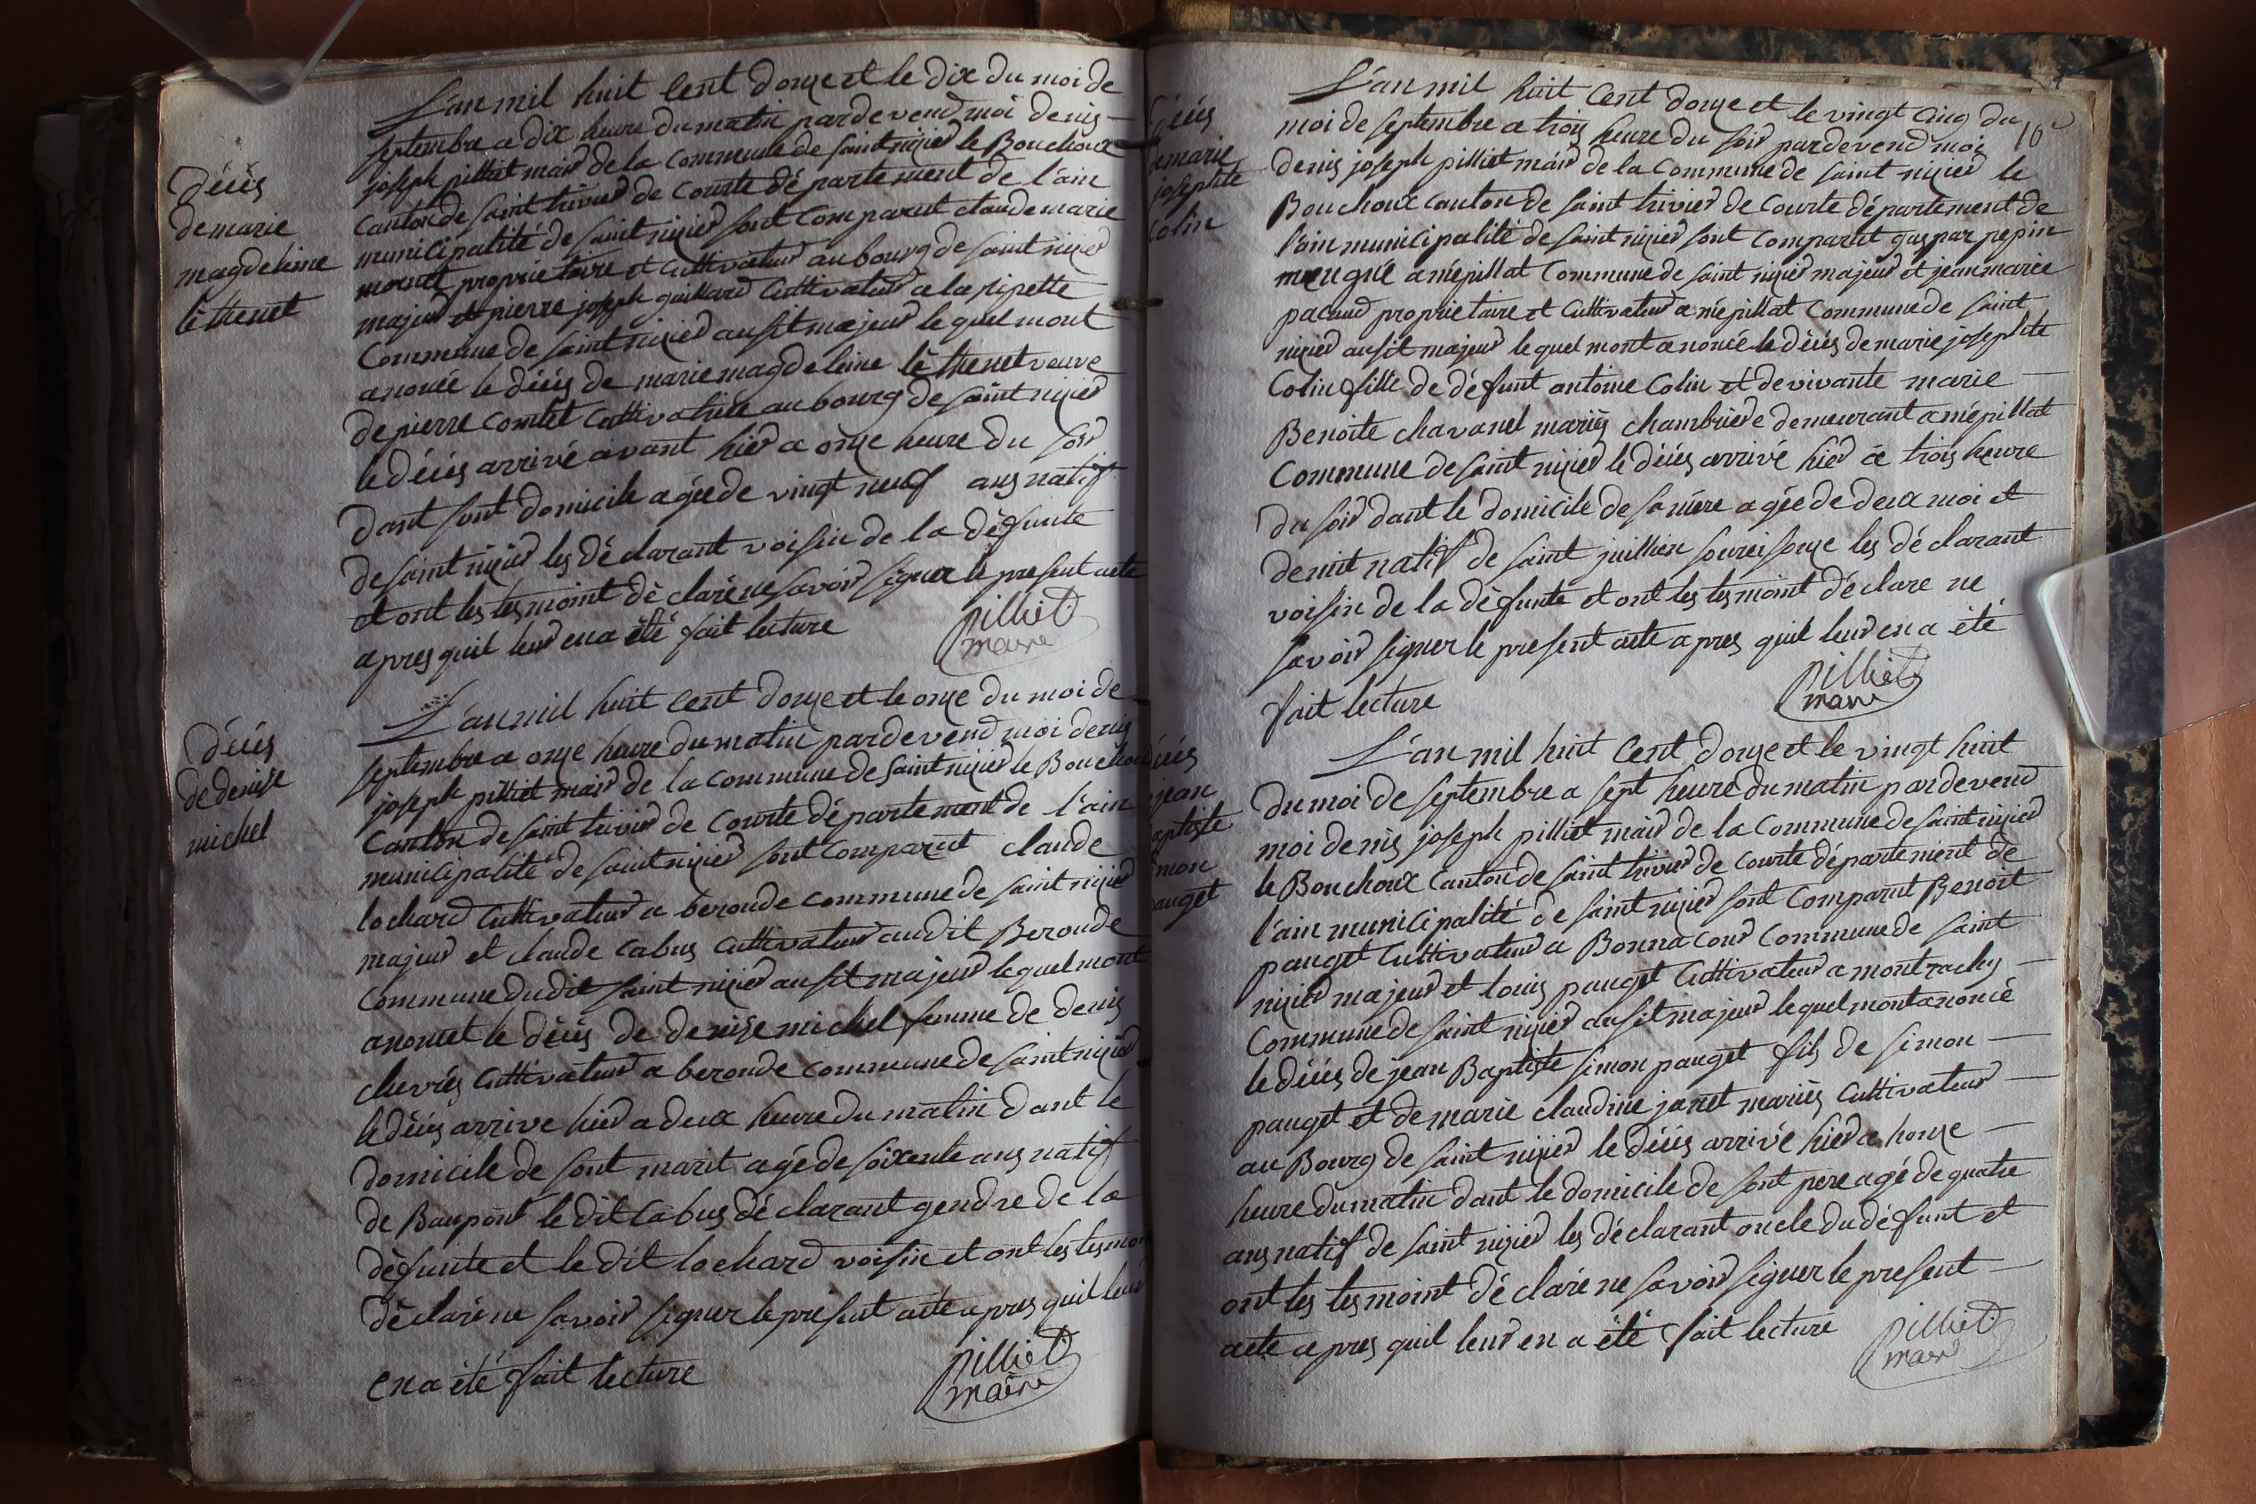 décès
de marie
magdeleine
lethenet
L'an mil huit cent douze et le dix du moi de
septembre a dix heure du matin pardevend moi denis
joseph pilliet maire de la commune de saint nizier le Bouchoux
canton de saint trivier de Courte département de l'ain
municipalité de saint nizier sont comparut claude marie
mornet proprietaire et cultivateur au bourg de saint nizier
majeur et pierre joseph guillard cultivateur a la pipette
commune de saint nizier ausit majeur le quel mont
anoncée le décès de marie magdeleine lethenet veuve
de pierre comtet cultivatrice au bourg de saint nizier
le décès arrivé avant hier a onze heure du soir
dant sont domicile agée de vingt neuf ans natif
de saint nizier les déclarant voisin de la défunte
et ont les tesmoint déclaré ne savoir signer le present acte
apres quil leur en a été fait lecture
Pilliet
maire
décès
de denise
michel
L'an mil huit cent douze et le onze du moi de
septembre a onze heure du matin pardevend moi denis
joseph pilliet maire de la commune de saint nizier le Bouchoux
canton de saint trivier de Courte département de l'ain
municipalité de saint nizier sont comparut claude
lochard cultivateur a beronde commune de saint nizier
majeur et claude cabus cultivateur audit Beronde
commune dudit saint nizier ausit majeur le quel mont
anoncet le décès de denise michel femme de denis
chevrés cultivateur a beronde commune de saint nizier
le décès arrive hier a deux heure du matin dant le
domicile de sont marit agé de soixente ans natif
de Baupont le dit Cabus déclarant gendre de la
défunte et le dit lochard voisin et ont les tesmoint
déclaré ne savoir signer le présent acte apres quil leur
en a été fait lecture
Pilliet
maire
10
décès
de marie
josephte
Colin
L'an mil huit cent douze et le vingt cinq du
moi de septembre a trois heure du soir pardevend moi
denis joseph pilliet maire de la commune de saint nizier le
Bouchoux canton de saint trivier de Courte département de
l'ain municipalité de saint nizier sont comparut gaspar pepin
a mépillat commune de saint nizier majeur et jean marie
pacoud proprietaire et cultivateur a mépillat commune de saint
nizier ausit majeur le quel mont anoncé le décès de marie josephte
Colin fille de défunt antoine Colin et de vivante marie
Benoite chavanel mariés chambriere demeurant a mépillat
commune de saint nizier le décès arrivé hier à trois heure
du soir dant le domicile de sa mére agée de deux moi et
demit natif de saint juillien les déclarant
voisin de la défunte et ont les tesmoint déclare ne
savoir signer le present acte apres quil leur en a été
fait lecture
Pilliet
maire
décès
jean
aptiste
imon
auget
L'an mil huit cent douze et le vingt huit
du moi de septembre a sept heure du matin pardevend
moi denis joseph pilliet maire de la commune de saint nizier
le Bouchoux canton de saint trivier de courte département de
l'ain municipalité de saint nizier sont comparut Benoit
pauget cultivateur a Bonnacour commune de saint
nizier majeur et louis pauget cultivateur a montrachy
commune de saint nizier ausit majeur le quel mont anoncé
le décès de jean Baptiste simon pauget fils de simon
pauget et de marie claudine janet mariés cultivateur
au Bourg de saint nizier le décès arrivé hier a honze
heure du matin dant le domicile de sont pere agé de quatre
ans natif de saint nizier les déclarant oncle du défunt et
ont les tesmoint déclaré ne savoir signer le present
acte apres quil leur en a été fait lecture
Pilliet
maire